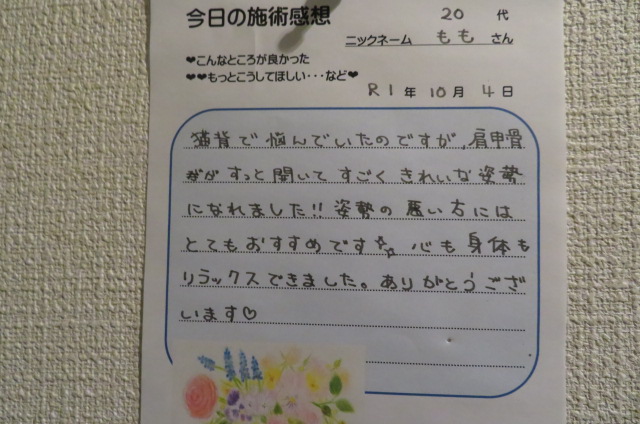 今日の施術感想
20 代
ニックネーム もも さん
♥こんなところが良かった
♥♥もっとこうしてほしい・・・など♥
R1 年 10 月 4 日
猫背で悩んでいたのですが、肩甲骨
がすっと開いてすごくきれいな姿勢
になれました!!姿勢の悪い方には
とてもおすすめです☆☆ 心も身体も
リラックスできました。ありがとうござ
います♡